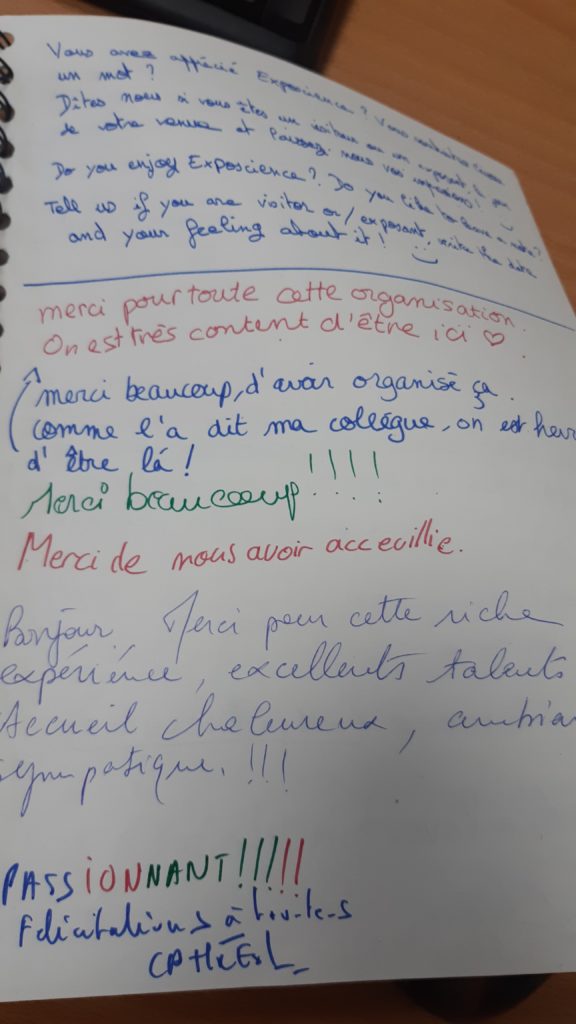 Vous avez appécié Exposcience ? Vous souhaitez laisser
un mot ?
Dîtes nous si vous êtes un visiteur ou un exposant, le jour
de votre venue et laissez-nous vos impressions !
Do you enjoy Exposcience ? Do you like to leave a note ?
Tell us if you are visitor or/exposant, write the date
and your feeling about it !
merci pour toute cette organisation.
On est très content d'être ici ♡.
merci beaucoup, d'avoir organisé ça.
comme l'a dit ma collégue, on est heur
d'être lá !
Merci beaucoup !!!!
Merci de nous avoir accevillie.
Bonjour, Merci pour cette riche
expérience, excellents talents
Accueil chaleureux, ambian
sympatique. !!!
PASSIONNANT !!!!!
Félicitations à tou-te-s